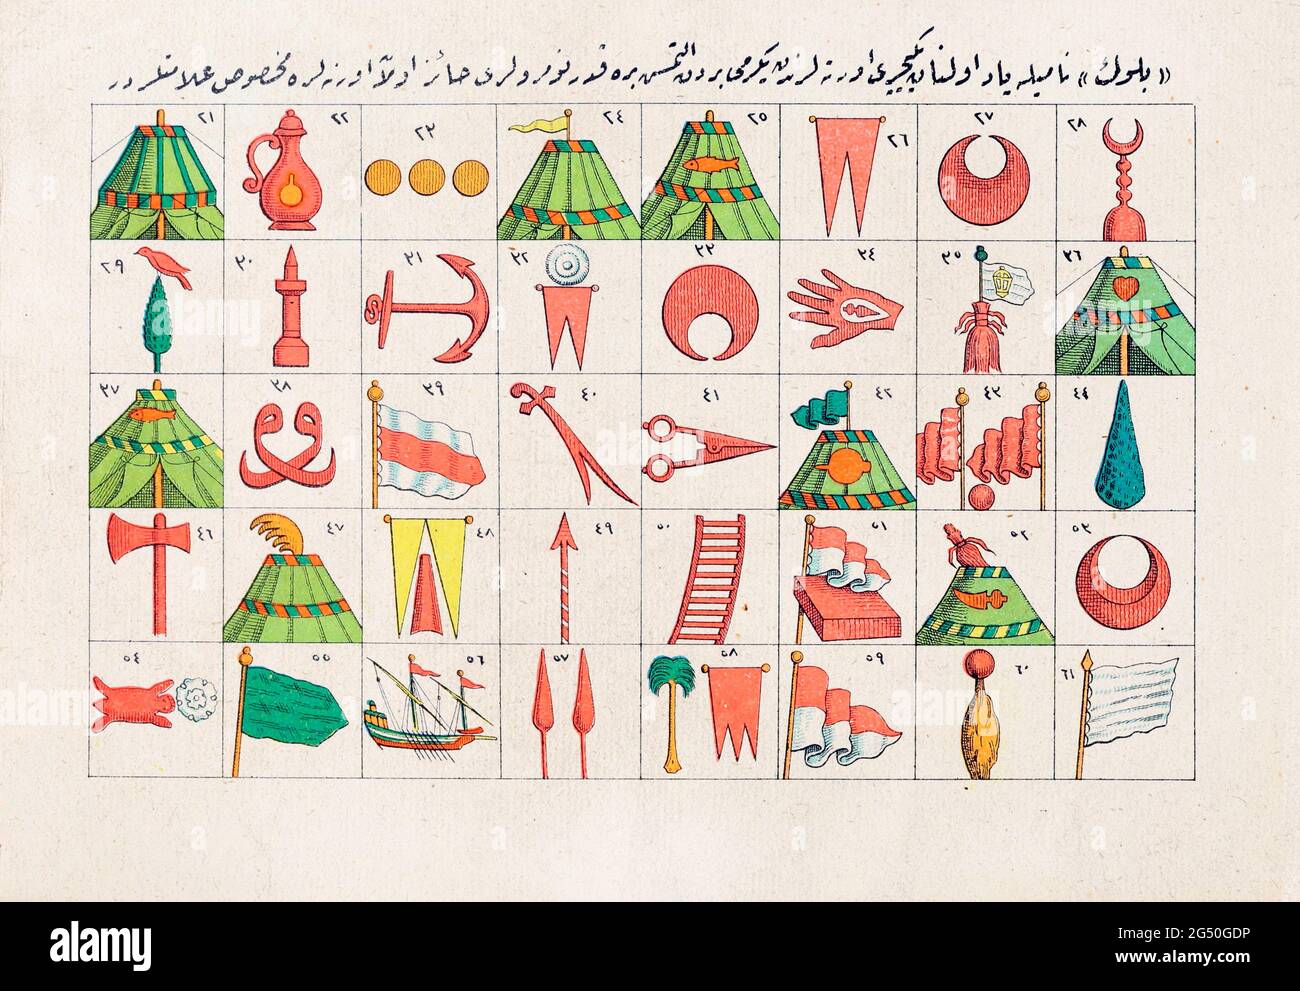 «بلوك» ناميله ياد اولنان يڭيچرى اورته لرندن يكرمى بردن التمش بره قدر نومرولرى حائز اولان اورته لره مخصوص علامتلردر
٢١ ٢٢ ٢٣ ٢٤ ٢٥ ٢٦ ٢٧ ٢٨
٢٩ ٣٠ ٣١ ٣٢ ٣٣ ٣٤ ٣٥ ٣٦
٣٧ ٣٨ ٣٩ ٤٠ ٤١ ٤٢ ٤٣ ٤٤
٤٦ ٤٧ ٤٨ ٤٩ ٥٠ ٥١ ٥٢ ٥٣
٥٤ ٥٥ ٥٦ ٥٧ ٥٨ ٥٩ ٦٠ ٦١
alamy
Image ID: 2G50GDP
www.alamy.com